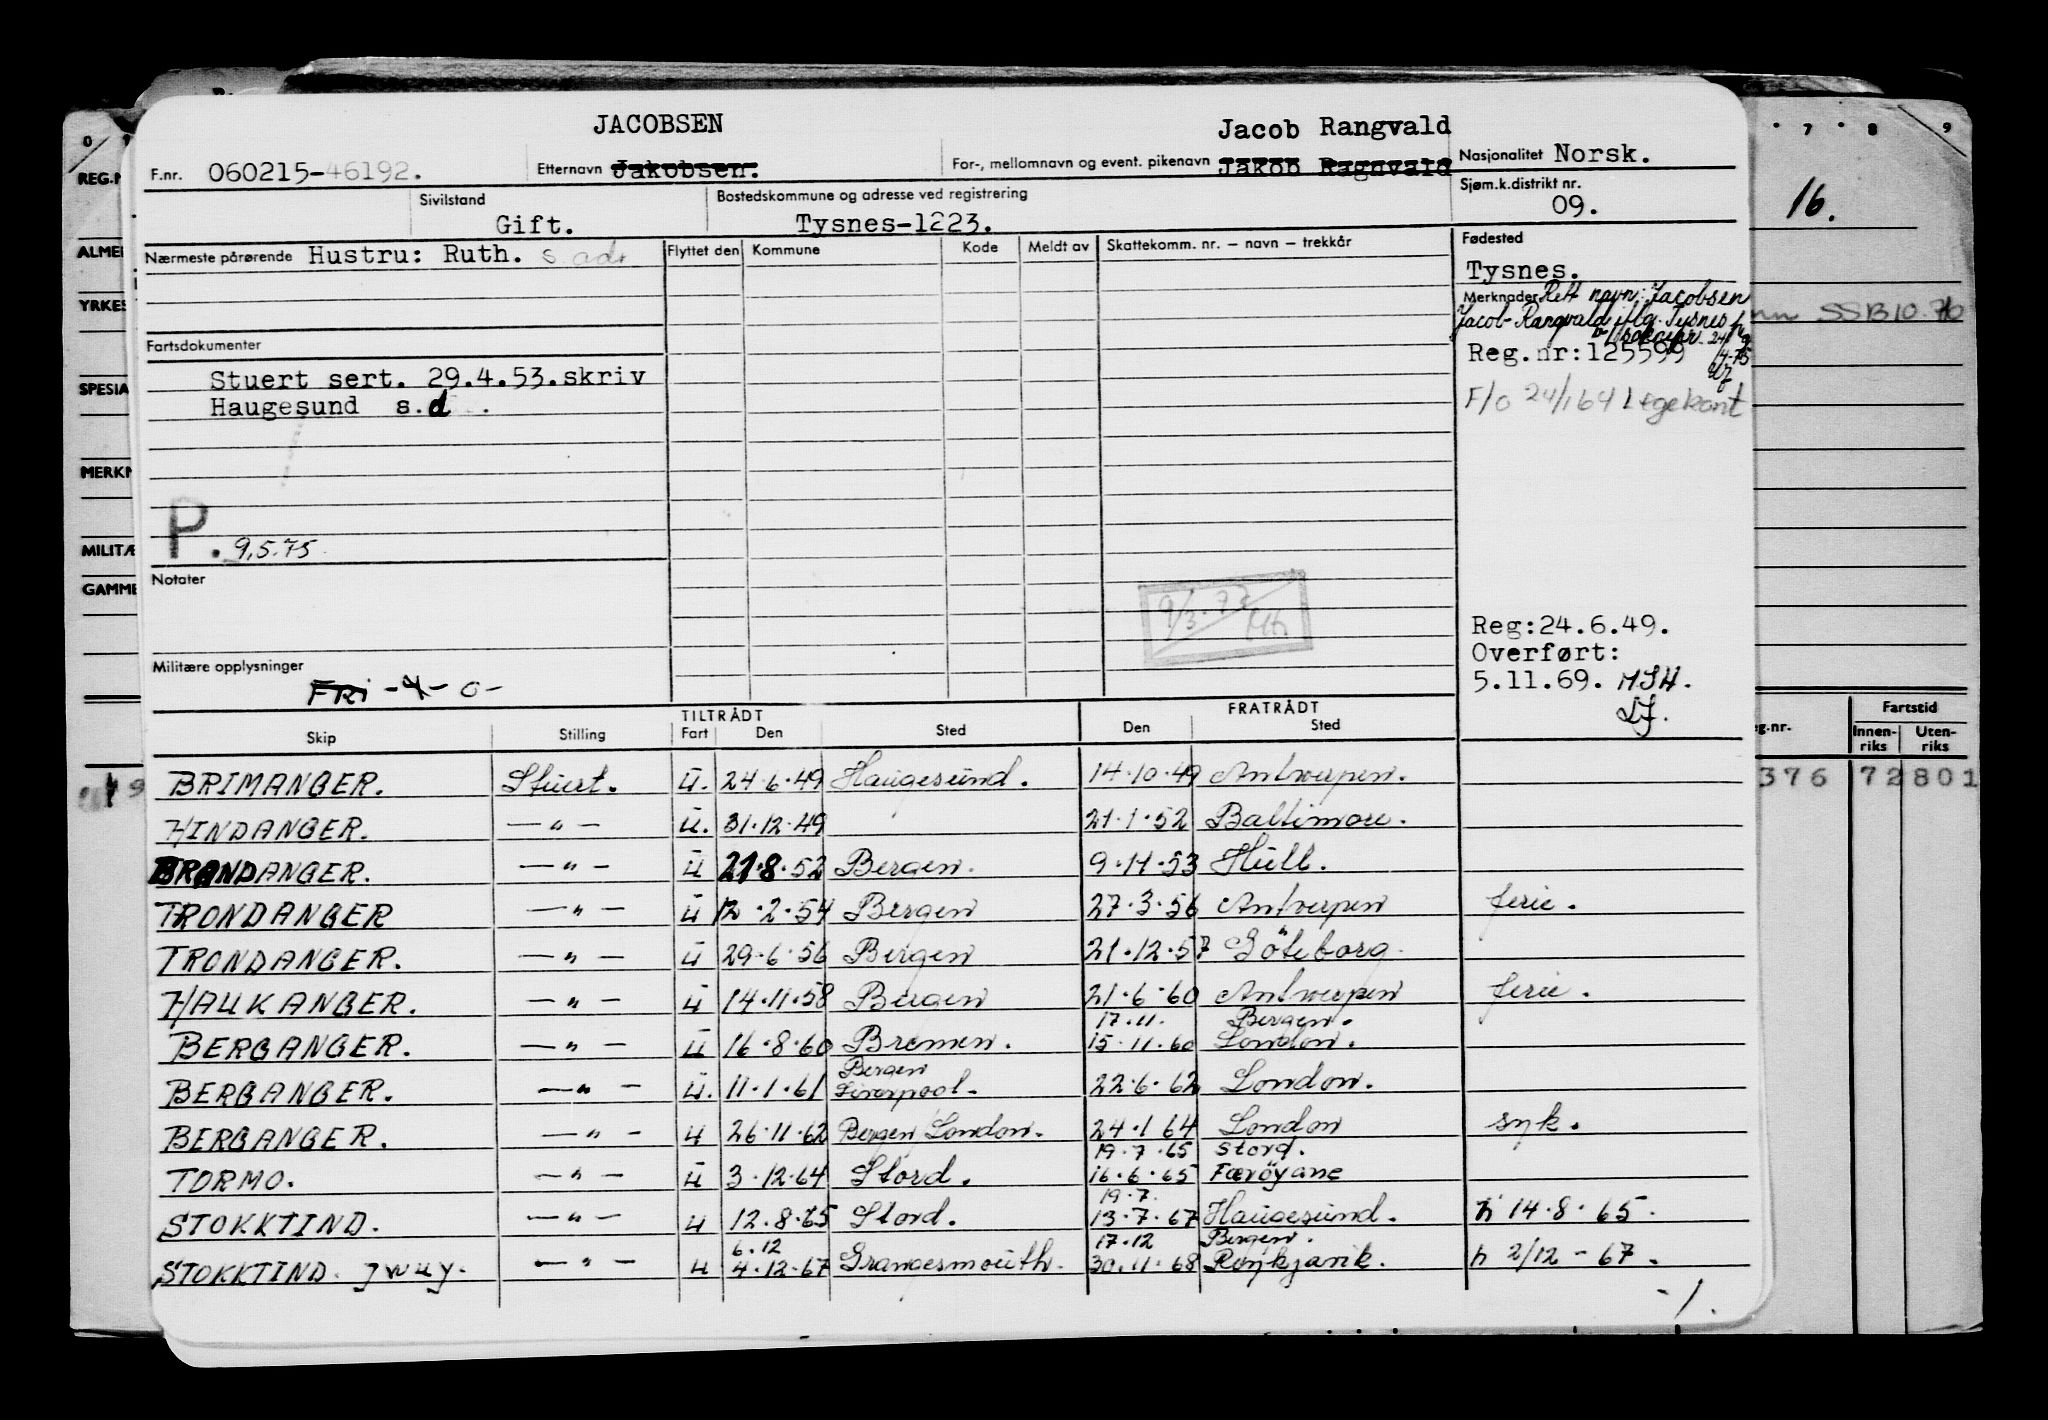 JACOBSEN Jacob Rangvald
F.nr. 060215-46192. Etternavn Jakobsen. For-, mellomnavn og event. pikenavn Jakob Ragnvald Nasjonalitet Norsk.
Sivilstand Bostedskommune og adresse ved registrering Sjøm.k.distrikt nr.
Gift. Tysnes-1223. 09.
16.
Nærmeste pårørende Hustru: Ruth. s. adr Flyttet den Kommune Kode Meldt av Skattekomm. nr. – navn – trekkår Fødested
Tysnes.
Merknader Rett navn: Jacobsen
Jacob Rangvald iflg. Tysnes
Fartsdokumenter
Reg.nr:125599
Stuert sert. 29.4.53.skriv
Haugesund s.d
F/o 24/1 64 Legekont
SSB 10.70
P. 9.5.75
Notater
9/3.72
Reg:24.6.49.
Overført:
5.11.69. MSH.
Militære opplysninger
FRi -4- 0-
TILTRÅDT FRATRÅDT
Skip Stilling Fart Den Sted Den Sted
BRIMANGER. Stuert. u. 24.6.49 Haugesund. 14.10.49 Antwerpen.
HINDANGER. — " — u. 31.12.49 21.1.52 Baltimore.
BRANDANGER. — " — u 21.8.52 Bergen. 9.11.53 Hull.
TRONDANGER — " — u 12.2.54 Bergen 27.3.56 Antverpen ferie.
TRONDANGER. — " — u 29.6.56 Bergen 21.12.57 Göteborg.
HAUKANGER. — " — u 14.11.58 Bergen 21.6.60 Antwerpen ferie.
17.11. Bergen.
BERGANGER. — " — u 16.8.60 Bremen. 15.11.60 London.
Bergen
BERGANGER. — " — u. 11.1.61 Liverpool. 22.6.62 London.
BERGANGER. — " — u 26.11.62 Bergen London. 24.1 64 London syk.
19.7.65 Stord.
TORMO. — " — u 3.12.64 Stord. 16.6.65 Færöyane
19.7.
STOKKTIND. — " — u 12.8.65 Stord. 13.7.67 Haugesund. h 14.8.65.
6.12 17.12 Bergen.
STOKKTIND. JWUY. — " — u 4.12.67 Grangesmouth. 30.11.68 Reykjavik. h 2/12-67.
-1.
0 7 8 9
REG.N
ALMEN
YRKES
SPESIA
MERKN
MILITÆ
GAMME
Fartstid
g.nr. Innen-riks Uten-riks
376 72 801